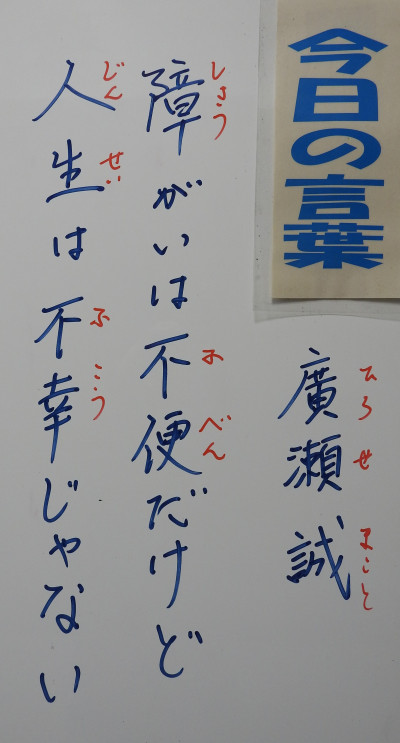 今日の言葉
廣瀬誠
ひろせまこと
障がいは不便だけど
しょうふべん
人生は不幸じゃない
じんせいふこう